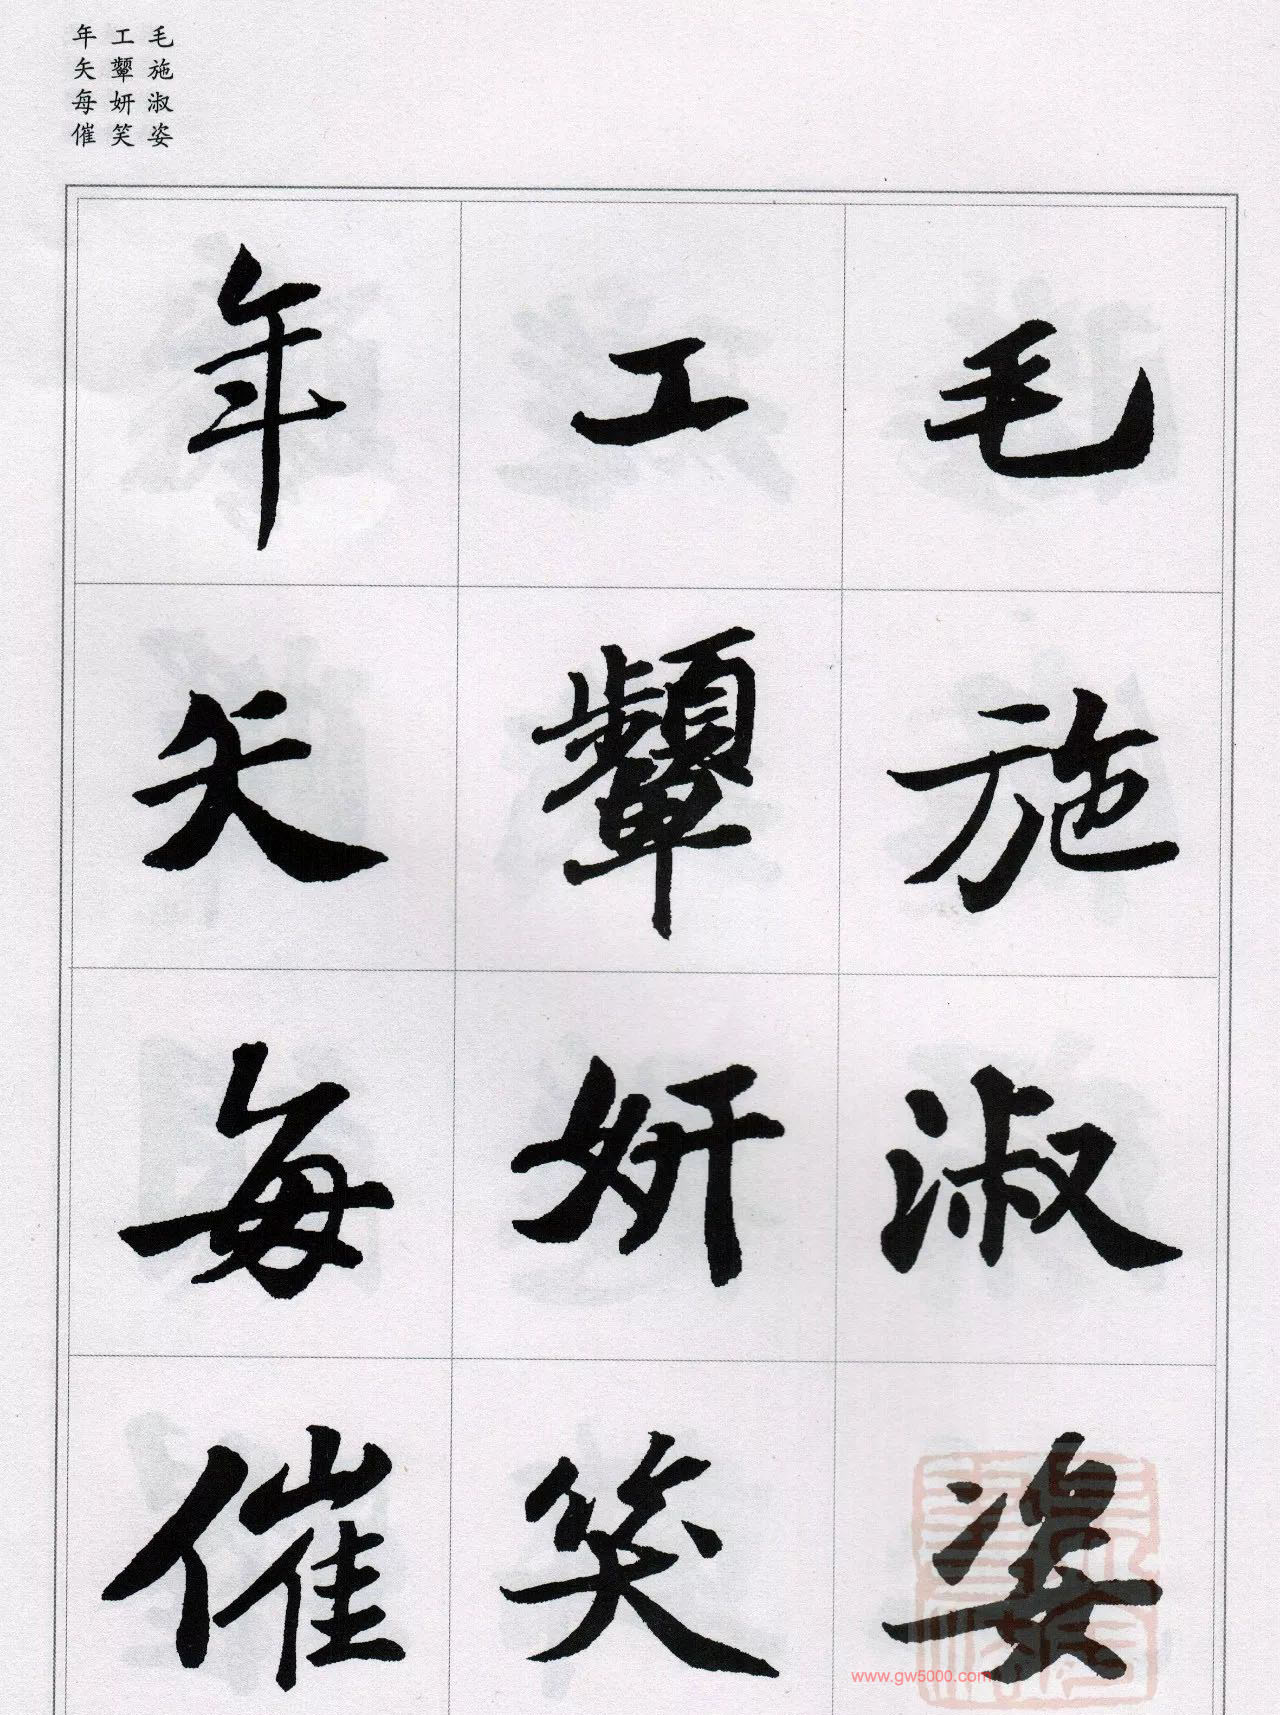 毛施淑姿
工顰妍笑
年矢每催
毛施淑姿
工顰妍笑
年矢每催
www.gw5000.com